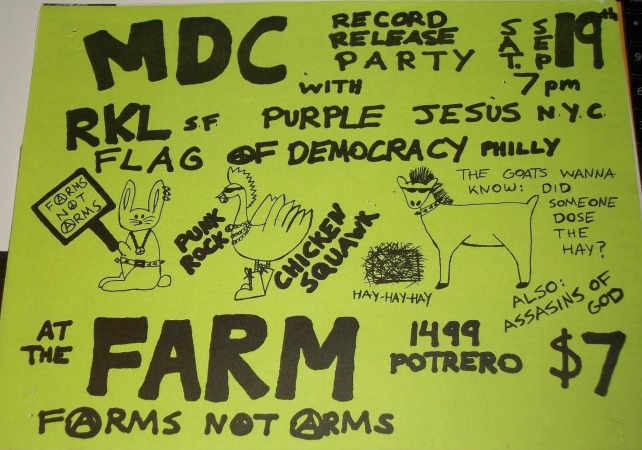 MDC
RECORD
RELEASE
PARTY
SAT. SEP 19th
WITH
7 pm
RKL S.F.
PURPLE JESUS N.Y.C.
FLAG OF DEMOCRACY PHILLY
FARMS
NOT
ARMS
PUNK
ROCK
CHICKEN
SQUAWK
THE GOATS WANNA
KNOW: DID
SOMEONE
DOSE
THE
HAY?
HAY-HAY-HAY
ALSO:
ASSASINS OF
GOD
AT
THE
FARM
1499
POTRERO
$7
FARMS NOT ARMS